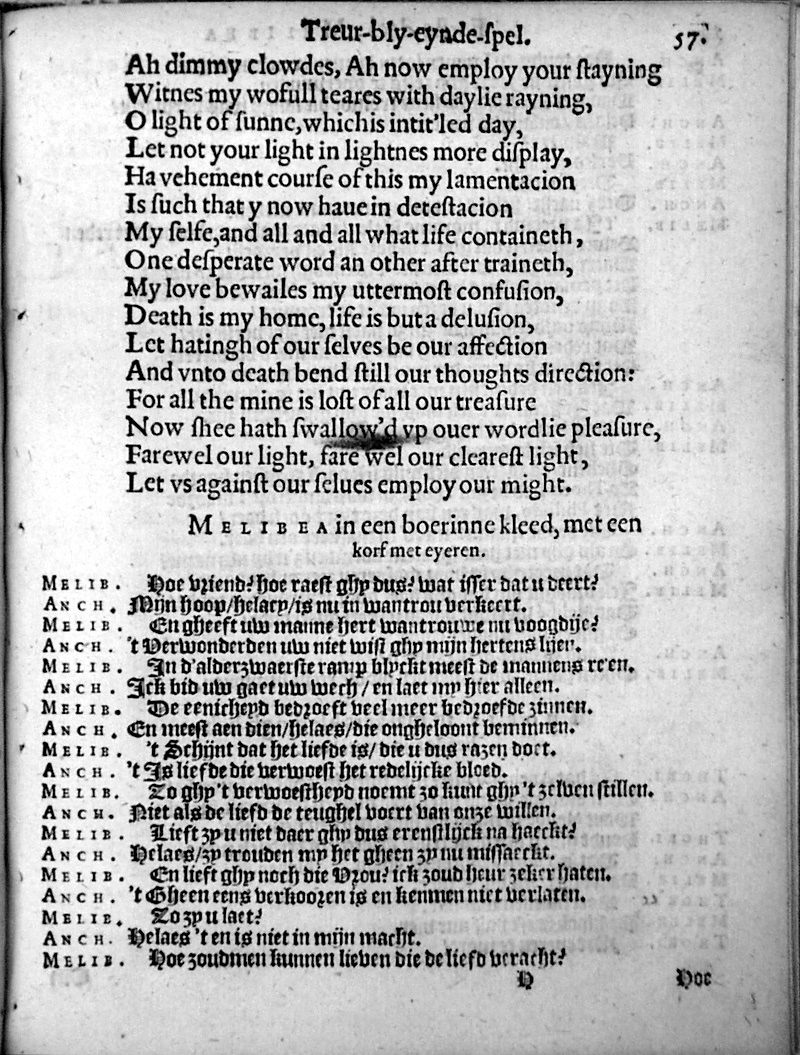 Treur-bly-eynde-ſpel. 57.
Ah dimmy clowdes, Ah now employ your ſtayning
Witnes my wofull teares with daylie rayning,
O light of ſunne, which is intit'led day,
Let not your light in lightnes more diſplay,
Ha vehement courſe of this my lamentacion
Is ſuch that y now haue in deteſtacion
My ſelfe, and all and all what life containeth,
One deſperate word an other after traineth,
My love bewailes my uttermoſt confuſion,
Death is my home, life is but a deluſion,
Let hatingh of our ſelves be our affection
And vnto death bend ſtill our thoughts direction:
For all the mine is loſt of all our treaſure
Now ſhee hath ſwallow'd vp ouer wordlie pleaſure,
Farewel our light, fare wel our cleareſt light,
Let vs againſt our ſelues employ our might.
MELIBEA in een boerinne kleed, met een
korf met eyeren.
MELIB. Hoe vriend? hoe raeſt ghy dus? wat iſſer dat u deert?
ANCH. Mijn hoop/helaey/is nu in wantrou verkeert.
MELIB. En gheeft uw manne hert wantrouwe nu voogdije?
ANCH. 't Verwonderden uw niet wiſt ghy mijn hertens lijen.
MELIB. In d'alderzwaerſte ramp blyckt meeſt de mannens re'en.
ANCH. Ick bid uw gaet uw wech / en laet my hier alleen.
MELIB. De eenicheyd bedroeft veel meer bedroefde zinnen.
ANCH. En meeſt aen dien/helaes/die ongheloont beminnen.
MELIB. 't Schijnt dat het liefde is/ die u dus razen doet.
ANCH. 't Is liefde die verwoeſt het redelijcke bloed.
MELIB. Zo ghy 't verwoeſtheyd noemt zo kunt ghy 't zelven ſtillen.
ANCH. Niet als de liefd de teughel voert van onze willen.
MELIB. Lieft zy u niet daer ghy dus erenſtlijck na haeckt?
ANCH. Helaes/zy trouden my het gheen zy nu miſſaeckt.
MELIB. En lieft ghy noch die Vrou? ick zoud heur zeker haten.
ANCH. 't Gheen eens verkooren is en kenmen niet verlaten.
MELIB. Zo zy u laet?
ANCH. Helaes 't en is niet in mijn macht.
MELIB. Hoe zoudmen kunnen lieven die de liefd veracht?
H Hoe